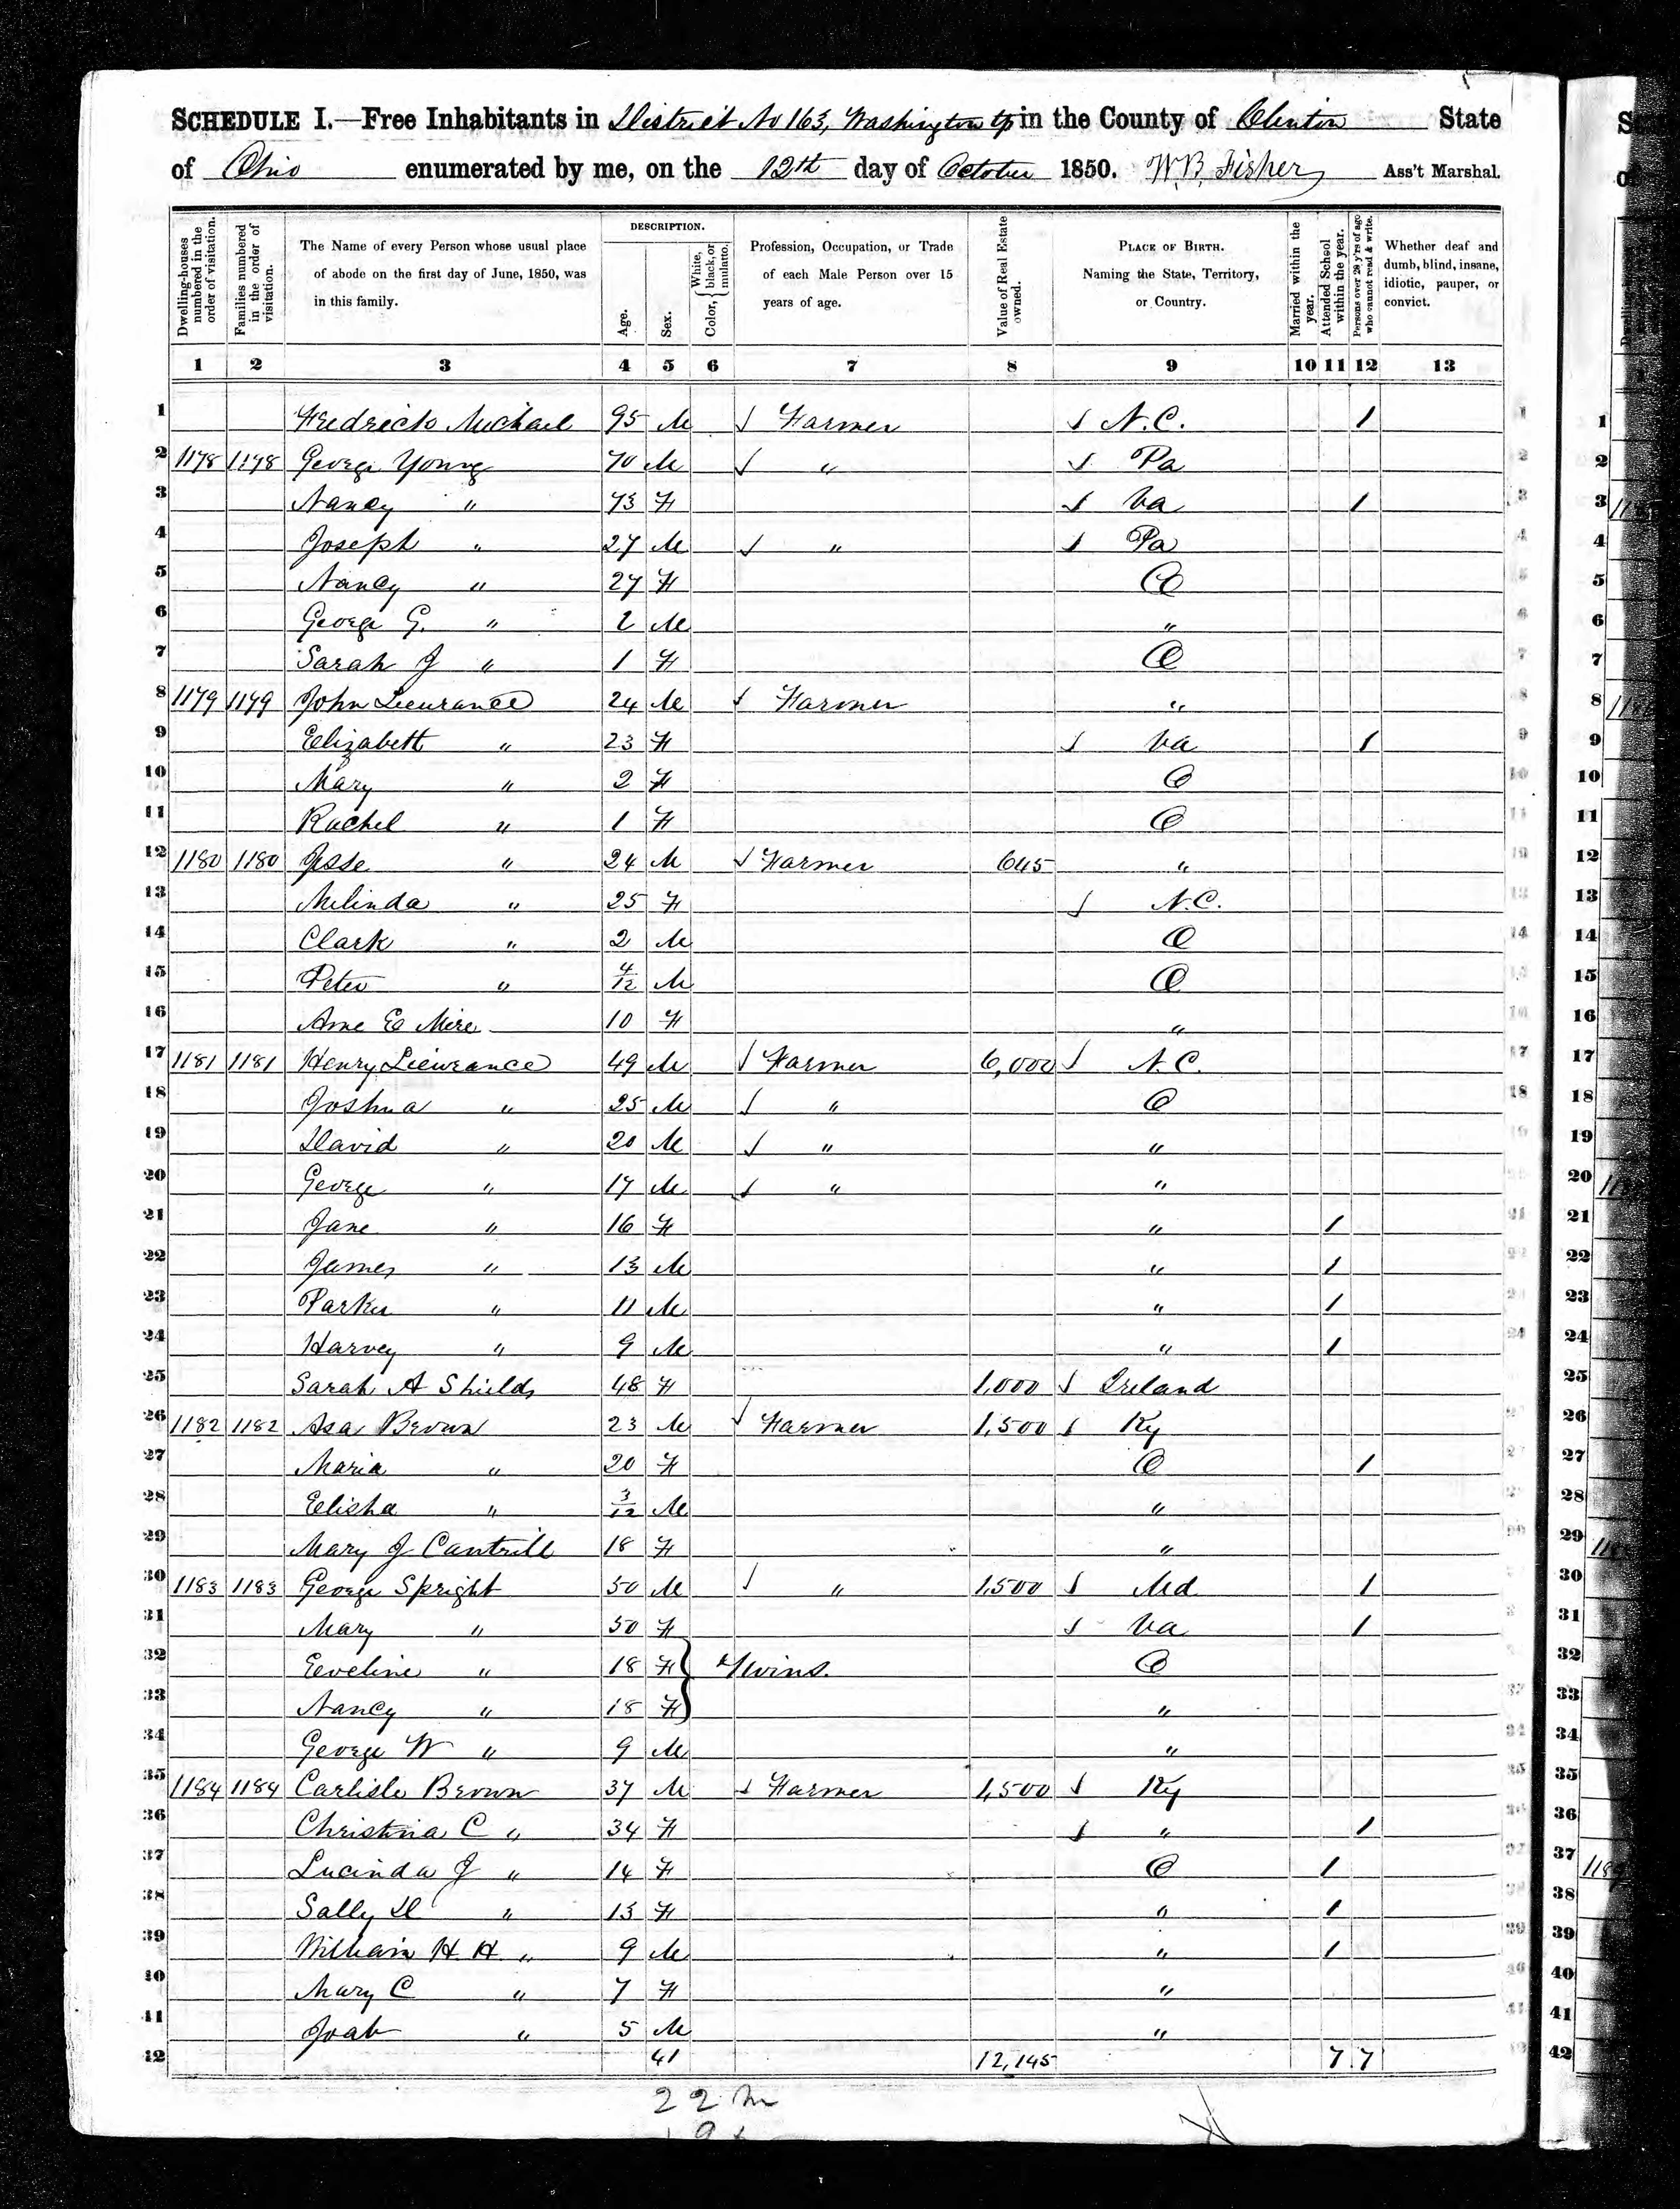 SCHEDULE I.—Free Inhabitants in District No 163, Washington tp in the County of Clinton State
of Ohio enumerated by me, on the 12th day of October 1850. W. B. Fisher Ass't Marshal.
Dwelling-houses numbered in the order of visitation.
Families numbered in the order of visitation.
The Name of every Person whose usual place of abode on the first day of June, 1850, was in this family.
DESCRIPTION.
Age.
Sex.
Color, { White, black, or mulatto.
Profession, Occupation, or Trade of each Male Person over 15 years of age.
Value of Real Estate owned.
PLACE OF BIRTH. Naming the State, Territory, or Country.
Married within the year.
Attended School within the year.
Persons over 20 y'rs of age who cannot read & write.
Whether deaf and dumb, blind, insane, idiotic, pauper, or convict.
1 2 3 4 5 6 7 8 9 10 11 12 13
1 Fredrick Michael 95 M Farmer N.C. 1
2 1178 1178 George Young 70 M " Pa
3 Nancy " 73 F Va 1
4 Joseph " 27 M " Pa
5 Nancy " 27 F O
6 George G. " 2 M "
7 Sarah J " 1 F O
8 1179 1179 John Lieurance 24 M Farmer "
9 Elizabeth " 23 F Va 1
10 Mary " 2 F O
11 Rachel " 1 F O
12 1180 1180 Jesse " 24 M Farmer 645 "
13 Milinda " 25 F N.C.
14 Clark " 2 M O
15 Peter " 4/12 M O
16 E Mire 10 F "
17 1181 1181 Henry Lieurance 49 M Farmer 6,000 N.C.
18 Joshua " 25 M " O
19 David " 20 M " "
20 George " 17 M " "
21 Jane " 16 F " 1
22 James " 13 M " 1
23 Parker " 11 M " 1
24 Harvey " 9 M " 1
25 Sarah A Shields 48 F 1,000 Ireland
26 1182 1182 Asa Brown 23 M Farmer 1,500 Ky
27 Maria " 20 F O 1
28 Elisha " 3/12 M "
29 Mary J Cantrill 18 F "
30 1183 1183 George Spright 50 M " 1,500 Md 1
31 Mary " 50 F Va 1
32 Eveline " 18 F } Twins. O
33 Nancy " 18 F "
34 George W " 9 M "
35 1184 1184 Carlisle Brown 37 M Farmer 1,500 Ky
36 Christina C " 34 F " 1
37 Lucinda J " 14 F O 1
38 Sally D " 13 F " 1
39 William H. H. " 9 M " 1
40 Mary C " 7 F "
41 Joab " 5 M "
42 41 12,145 7 7
22 m